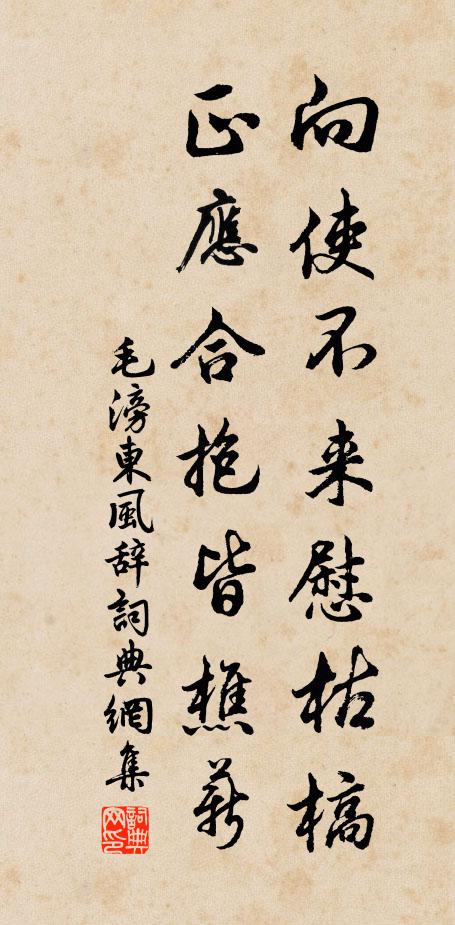 向使不来慰枯槁
正應合抱皆樵薪
毛滂東風辞詞典網集
詞典网印